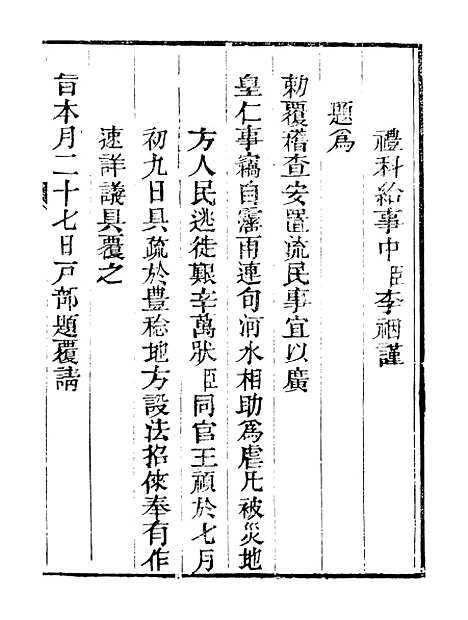 禮科給事中臣李祵謹
題爲
勅覆稽查安置流民事宜以廣
皇仁事竊自霪雨連旬河水相助爲虐凡被災地
方人民逃徙艱辛萬狀臣同官王頏於七月
初九日具疏於豊稔地方設法招倈奉有作
速詳議具覆之
旨本月二十七日戸部題覆請